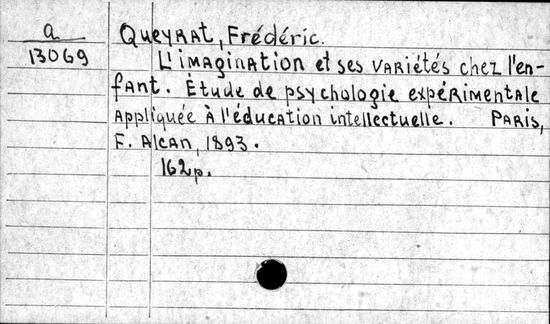 a
13069
Queyrat, Frédéric.
L'imagination et ses variétés chez l'en-
fant. Étude de psychologie expérimentale
appliquée à l'éducation intellectuelle. Paris,
F. Alcan, 1893.
162p.